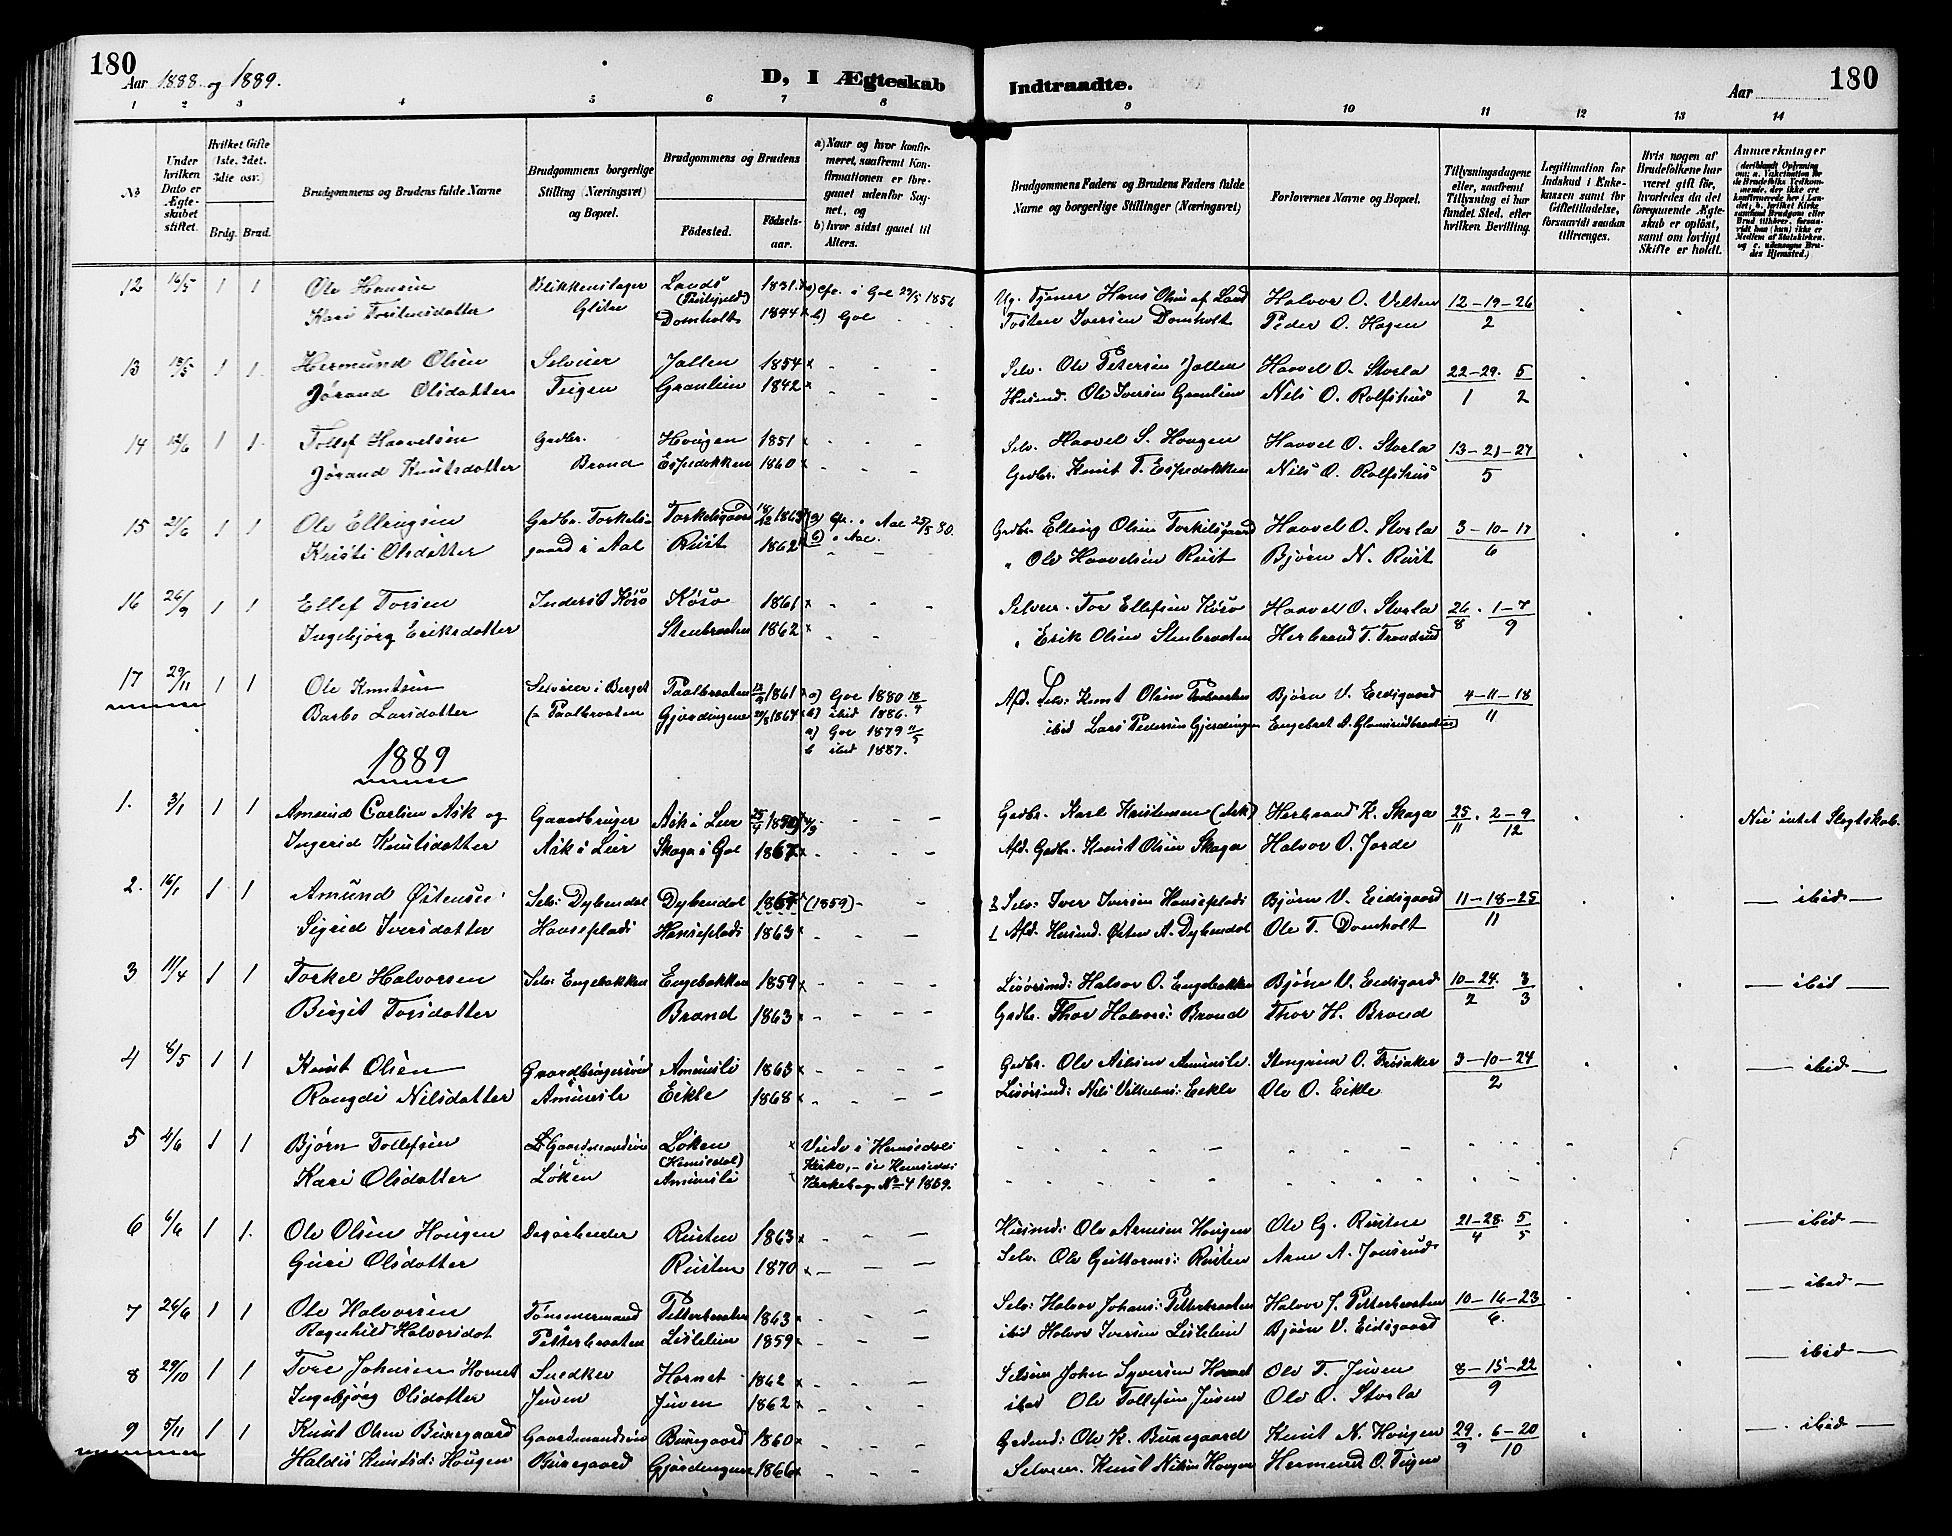 180
Aar 1888 og 1889.
D, I Ægteskab
Indtraadte.
Aar
180
1 2 3 4 5 6 7 8 9 10 11 12 13 14
No
Under hvilken Dato er Ægteskabet stiftet.
Hvilket Gifte (1ste, 2det, 3die osv.)
Brdg. Brud.
Brudgommens og Brudens fulde Navne
Brudgommens borgerlige Stilling (Næringsvei) og Bopæl.
Brudgommens og Brudens
Fødested.
Fødselsaar.
a) Naar og hvor konfirmeret, saafremt Konfirmationen er foregaaet udenfor Sognet, og
b) hvor sidst gaaet til Alters.
Brudgommens Faders og Brudens Faders fulde Navne og borgerlige Stillinger (Næringsvei)
Forlovernes Navne og Bopæl.
Tillysningsdagene eller, saafremt Tillysning ei har fundet Sted, efter hvilken Bevilling.
Legitimation for Indskud i Enkekassen samt for Giftetilladelse, forsaavidt saadan tiltrænges.
Hvis nogen af Brudefolkene har været gift før, hvorledes da det foregaaende Ægteskab er opløst, samt om lovligt Skifte er holdt.
Anmærkninger
12 16/5 1 1 Ole Hansen Blikkenslager Lands (Præstegjeld) 1831 a) Cfr. i Gol 29/5 1856 Ug. Tjener Hans Olsen af Land Halvor O. Velten 12-19-26
Kari Torstensdatter Domholt 1844 b) Gol Tosten Iversen Domholt Peder O. Hagen 2
13 18/5 1 1 Hermund Olsen Selveier Jallen 1854 Selv. Ole Petersen Jallen Haavel O. Storla 22-29. 5
Jørand Olsdatter Teigen Granlien 1842 Husmd. Ole Iversen Granlien Nils O. Rolfshus 1 2
14 12/6 1 1 Tollef Haavelsen Gadbr. Hougen 1851 Selv. Haavel S. Hougen Haavel O. Storla 13-21-27
Jørand Knutsdatter Brand Espedokken 1860 Gadbr. Knut T. Espedokken Nils O. Rolfshus 5
15 21/6 1 1 Ole Ellingsen Gadbr. Torkelsgaard Torkelsgaard 18/12 1863 a) Cfr. i Aal 25/5 80. Gadbr. Elling Olsen Torkelsgaard Haavel O. Storla 3-10-17
Kristi Olsdatter gaard i Aal Rust 1862 b) i Aal. " Ole Haavelsen Rust Bjørn N. Rust 6
16 26/9 1 1 Ellef Torsen Inderst Køso Køso 1861 Selveier. Tor Ellefsen Køso Haavel O. Storla 26. 1-7
Ingebjørg Eriksdatter Stenbraaten 1862 " Erik Olsen Stenbraaten Herbrand T. Trandrud 8 9
17 29/11 1 1 Ole Knutsen Selveier i Berget Paalbraaten 1861 a) Gol 1880 Afd. Selv. Knut Olsen Bjørn V. Eidsgaard 4-11-18
Barbo Larsdatter Paalbraaten Gjerdingen 1864 b) ibid 1886. ibid Lars Pedersen Gjerdingen 11
a) Gol 1879
b ibid 1887.
1889
1. 3/1 1 1 Amund Carlsen Ask og Gaardbruger Ask i Lier Gadbr. Karl Kristensen (Ask) Herbrand K. Skaga 25. 2-9 Nei intet Slegtskab.
Ingerid Knutsdatter Ask i Lier Skaga i Gol 1867 Afd. Gadbr. Knut Olsen Skaga Halvor O. Jorde 11 12
2. 16/1 1 1 Amund Østensen Selv: Dybendal Dybendal 1867 (1859) 2 Selv: Iver Iversen Hanseplads Bjørn V. Eidsgaard 11-18-25 — ibid —
Sigrid Iversdatter Hanseplads Hanseplads 1863 1 Afd. Husmd. Østen A. Dybendal Ole T. Domholt 11
3 11/4 1 1 Torkel Halvorsen Selv: Engebakken Engebakken 1859 Halvor O. Engebakken Bjørn V. Eidsgaard 10-24. 3 — ibid —
Birgit Torsdatter Brand 1863 Gadbr. Thor Halvors: Brand Thor H. Brand 2 3
4 8/5 1 1 Knut Olsen Gaardbrugersøn Amunsli 1863 Gadbr. Ole Amunsli. O. Frøsaker 3-10-24 — ibid —
Rangdi Nilsdatter Amunsli Eikle 1868 Nils Vilhelms: Eikle Ole O. Eikle 2
5 4/6 1 1 Bjørn Tollefsen Gaardmandssøn Løken Viede i Hemsedals
Kari Olsdatter Løken (Hemsedal) Amunsli Kirke, - se Hemsedals
Kirkebog No 4 1889.
6 6/6 1 1 Ole Olsen Hougen Dagarbeider Rusten 1863 Husmd: Ole Arnesen Hougen Ole G. Rusten 21-28. 5 — ibid —
Guri Olsdatter Rusten 1870 Selv. Ole Guttorms: Rusten Arne A. Jonsrud 4 5
7 26/6 1 1 Ole Halvorsen Tømmermand Petterbraaten 1863 Selv: Halvor Johans: Petterbraaten Halvor J. Petterbraaten 10-16-23 — ibid —
Ragnhild Halvorsdat Petterbraaten Lislelien 1859 ibid Halvor Iversen Lislelien Bjørn V. Eidsgaard 6.
8 29/10 1 1 Tore Johnsen Hornet Snedker Hornet 1862 John Syversen Hornet Ole T. Juven 8-15-22 — ibid —
Ingebjørg Olsdatter Juven Juven 1862 ibid Ole Tollefsen Juven Ole O. Storla 9
9 5/11 1 1 Knut Olsen Bunegaard Gaardmandssøn Bunegaard 1860 Ole K. Bunegaard Knut N. Hougen 29. 6-20 — ibid —
Haldis Knutsd: Hougen Bunegaard Gjerdingen 1866 Selveier. Knut Nilsen Hougen Hermund O. Teigen 9 10